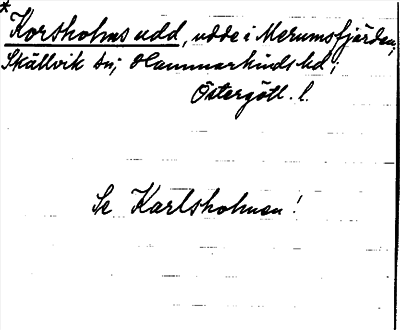 * Korsholms udd, udde i Merumsfjärden,
Skällvik sn; Hammarkinds hd;
Östergötl. l.
Se Karlsholmen!